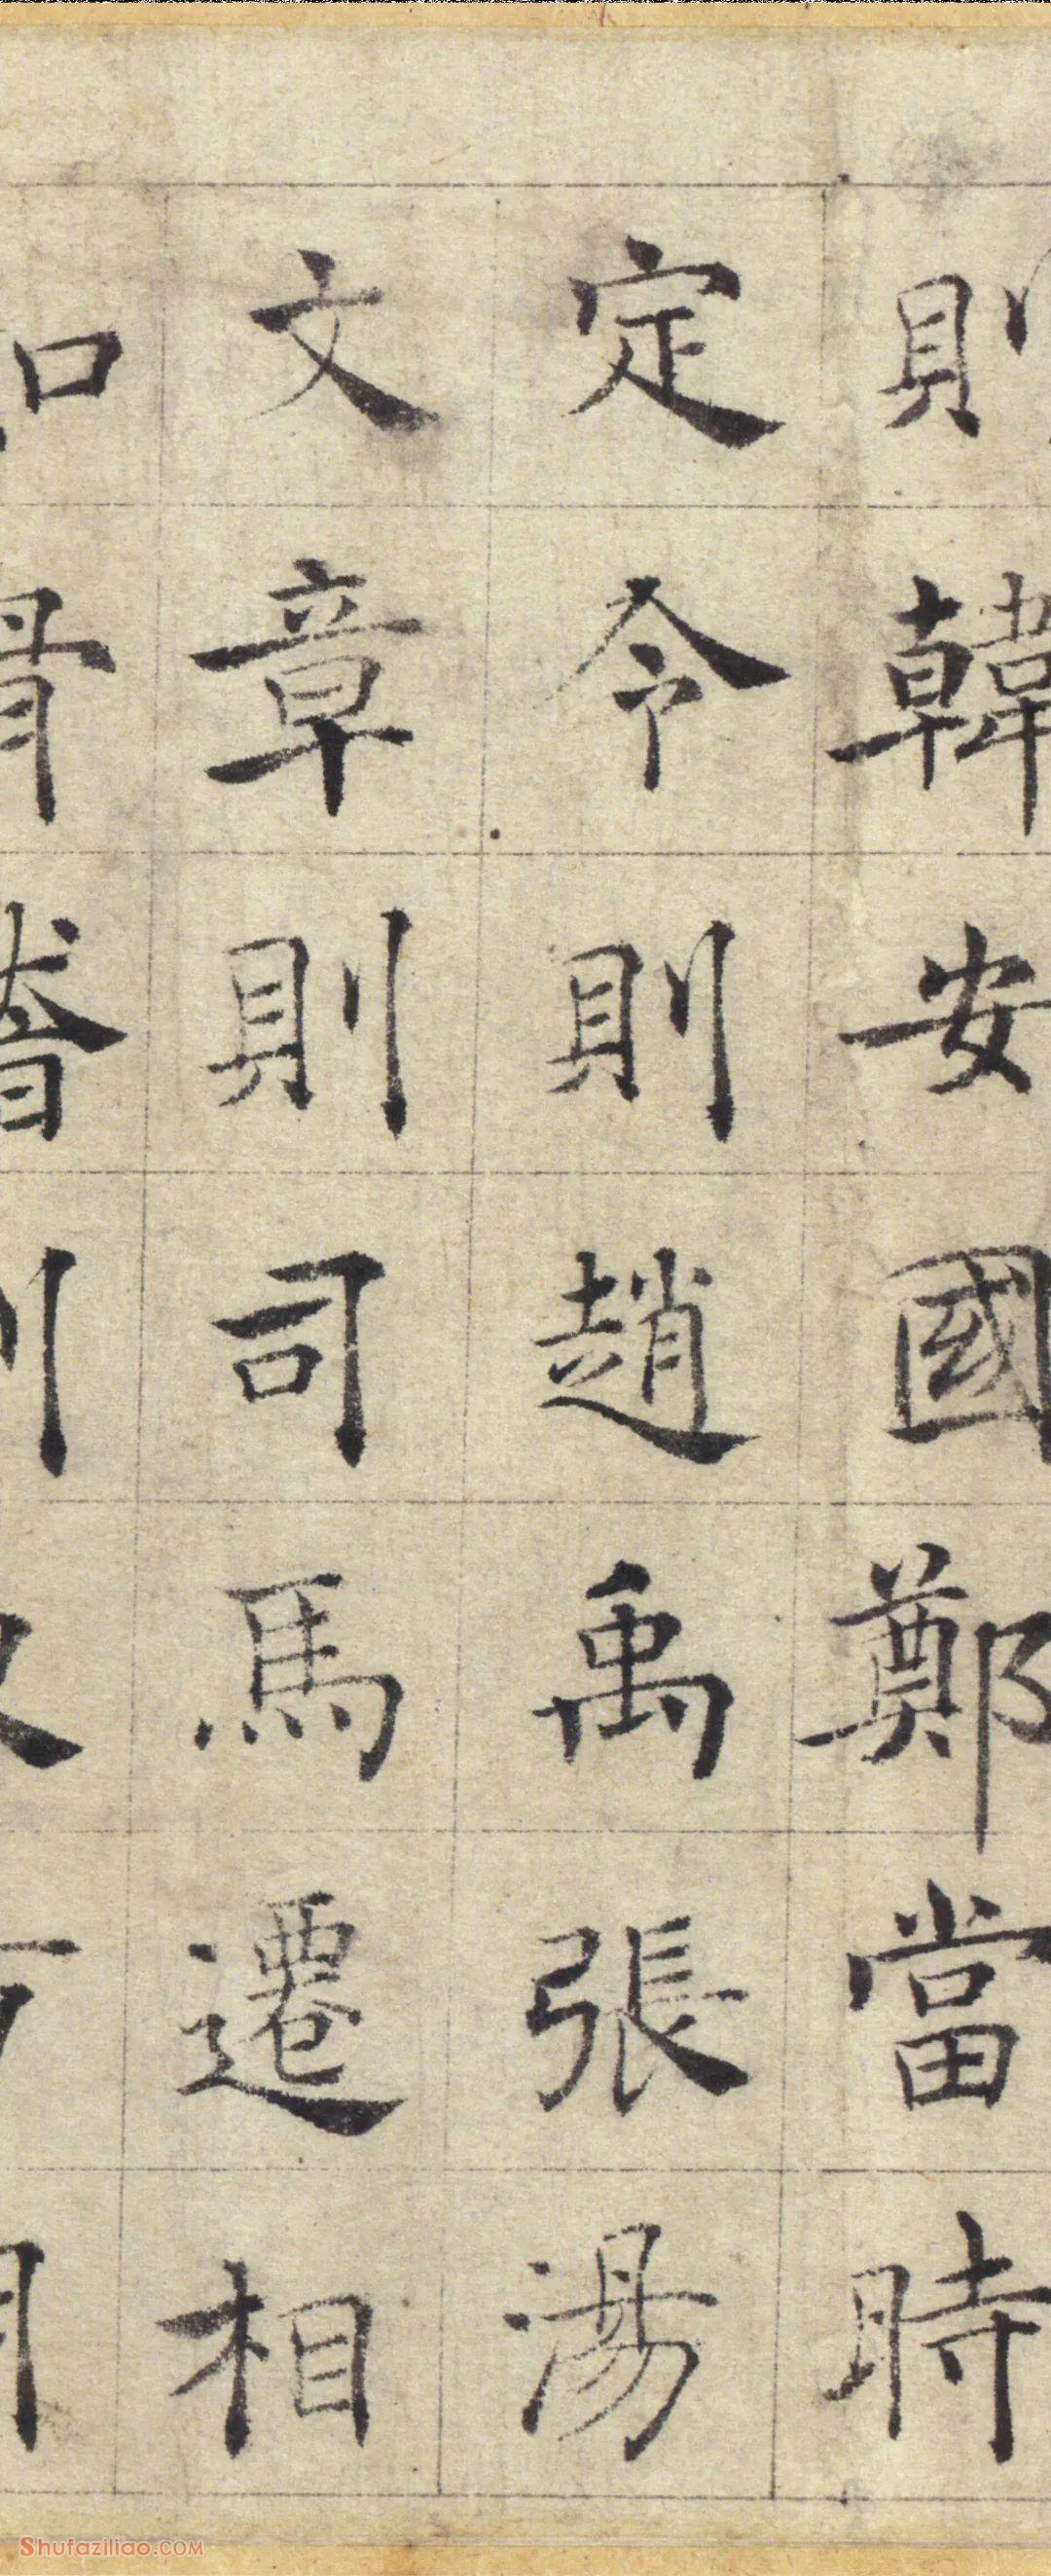 則韓安國鄭當時
定令則趙禹張湯
文章則司馬遷相
Shufaziliao.COM